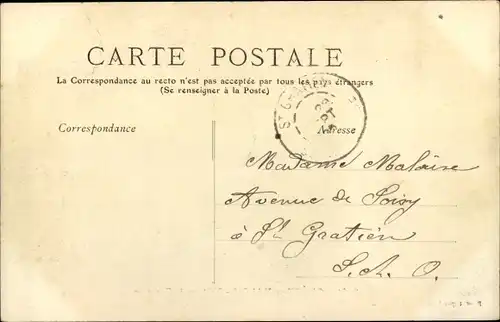 CARTE POSTALE
La Correspondance au recto n'est pas acceptée par tous les pays étrangers
(Se renseigner à la Poste)
Correspondance
Adresse
Madame Malaise
Avenue de Soisy
à St Gratien
S. & O.